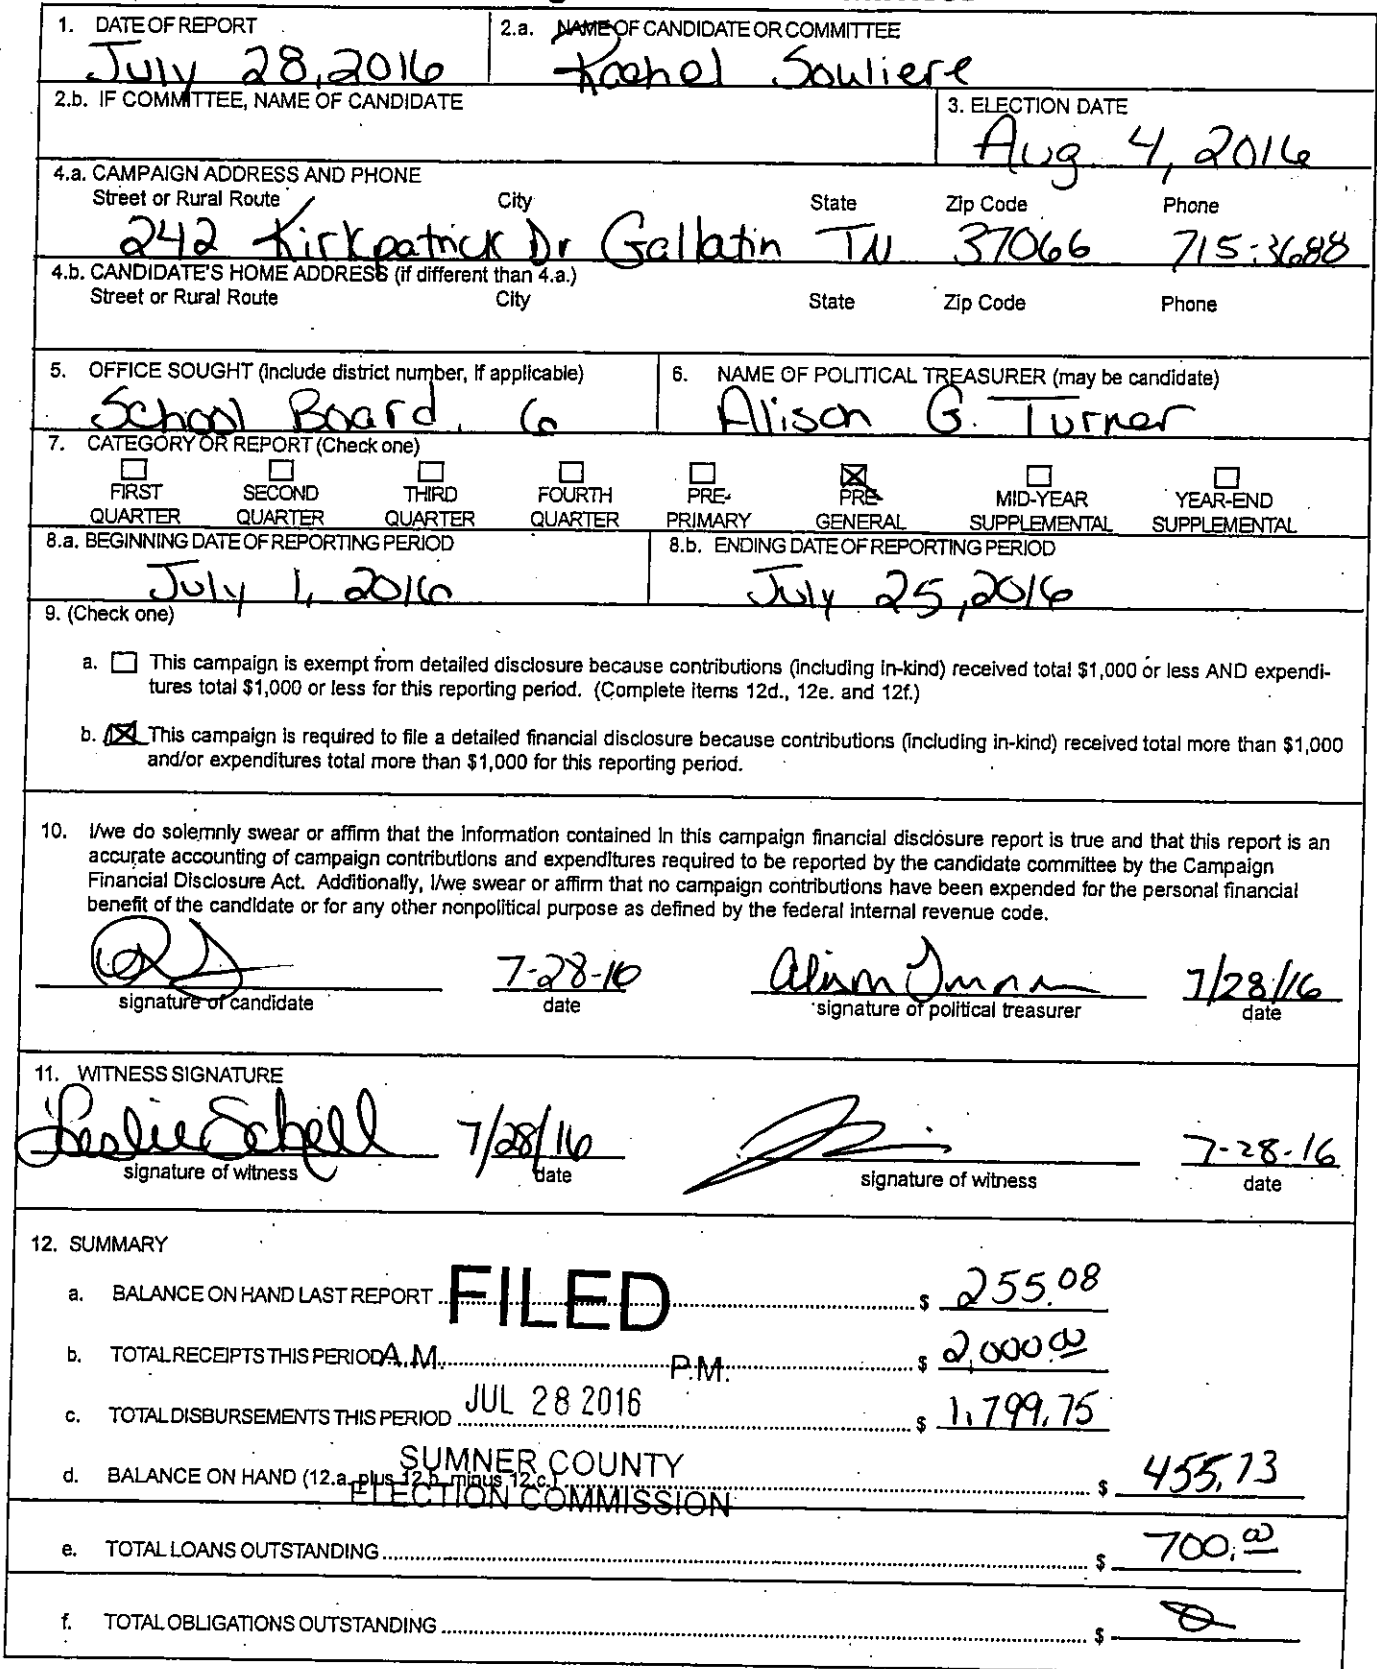 1. DATE OF REPORT 2.a. NAME OF CANDIDATE OR COMMITTEE
July 28, 2016 Rachel Souliere
2.b. IF COMMITTEE, NAME OF CANDIDATE 3. ELECTION DATE
Aug 4, 2016
4.a. CAMPAIGN ADDRESS AND PHONE
Street or Rural Route City State Zip Code Phone
242 Kirkpatrick Dr Gallatin TN 37066 715-3688
4.b. CANDIDATE'S HOME ADDRESS (if different than 4.a.)
Street or Rural Route City State Zip Code Phone
5. OFFICE SOUGHT (include district number, if applicable) 6. NAME OF POLITICAL TREASURER (may be candidate)
School Board, 6 Alison G. Turner
7. CATEGORY OR REPORT (Check one)
FIRST SECOND THIRD FOURTH PRE- PRE- MID-YEAR YEAR-END
QUARTER QUARTER QUARTER QUARTER PRIMARY GENERAL SUPPLEMENTAL SUPPLEMENTAL
8.a. BEGINNING DATE OF REPORTING PERIOD 8.b. ENDING DATE OF REPORTING PERIOD
July 1, 2016 July 25, 2016
9. (Check one)
a. This campaign is exempt from detailed disclosure because contributions (including in-kind) received total $1,000 or less AND expendi-
tures total $1,000 or less for this reporting period. (Complete items 12d., 12e. and 12f.)
b. This campaign is required to file a detailed financial disclosure because contributions (including in-kind) received total more than $1,000
and/or expenditures total more than $1,000 for this reporting period.
10. I/we do solemnly swear or affirm that the information contained in this campaign financial disclosure report is true and that this report is an
accurate accounting of campaign contributions and expenditures required to be reported by the candidate committee by the Campaign
Financial Disclosure Act. Additionally, I/we swear or affirm that no campaign contributions have been expended for the personal financial
benefit of the candidate or for any other nonpolitical purpose as defined by the federal internal revenue code.
7-28-16 Alison Turner 7/28/16
signature of candidate date signature of political treasurer date
11. WITNESS SIGNATURE
Leslie Schell 7/28/16 7-28-16
signature of witness date signature of witness date
12. SUMMARY
a. BALANCE ON HAND LAST REPORT $ 255.08
FILED
b. TOTAL RECEIPTS THIS PERIOD $ 2,000.00
A.M. P.M.
c. TOTAL DISBURSEMENTS THIS PERIOD $ 1,799.75
JUL 28 2016
d. BALANCE ON HAND (12.a. plus 12.b. minus 12.c.) $ 455.73
SUMNER COUNTY
ELECTION COMMISSION
e. TOTAL LOANS OUTSTANDING $ 700.00
f. TOTAL OBLIGATIONS OUTSTANDING $ 0